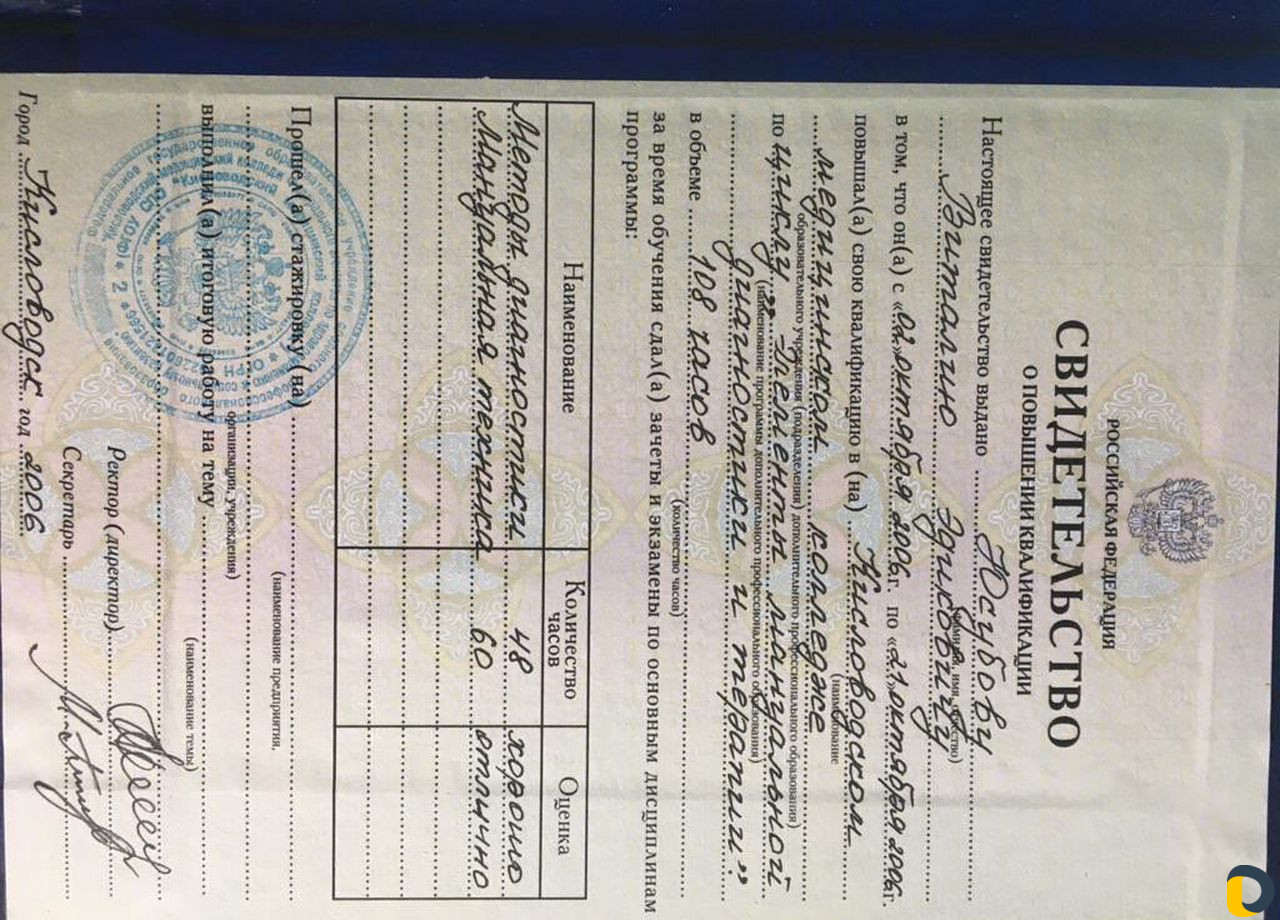 РОССИЙСКАЯ ФЕДЕРАЦИЯ
СВИДЕТЕЛЬСТВО
О ПОВЫШЕНИИ КВАЛИФИКАЦИИ
Настоящее свидетельство выдано Юсубову
(фамилия, имя, отчество)
Виталию Эдиковичу
в том, что он(а) с «01» октября 2006 г. по «21» октября 2006 г.
повышал(а) свою квалификацию в (на) Кисловодском
(наименование
медицинском колледже
образовательного учреждения (подразделения) дополнительного профессионального образования)
по циклу: „Элементы мануальной
(наименование программы дополнительного профессионального образования)
диагностики и терапии".
в объеме 108 часов
(количество часов)
за время обучения сдал(а) зачеты и экзамены по основным дисциплинам
программы:
Наименование Количество часов Оценка
Методы диагностики 48 хорошо
Мануальная техника 60 отлично
Прошел(а) стажировку (на)
(наименование предприятия,
организации, учреждения)
выполнил(а) итоговую работу на тему
(наименование темы)
Ректор (директор)
Секретарь
Город Кисловодск год 2006